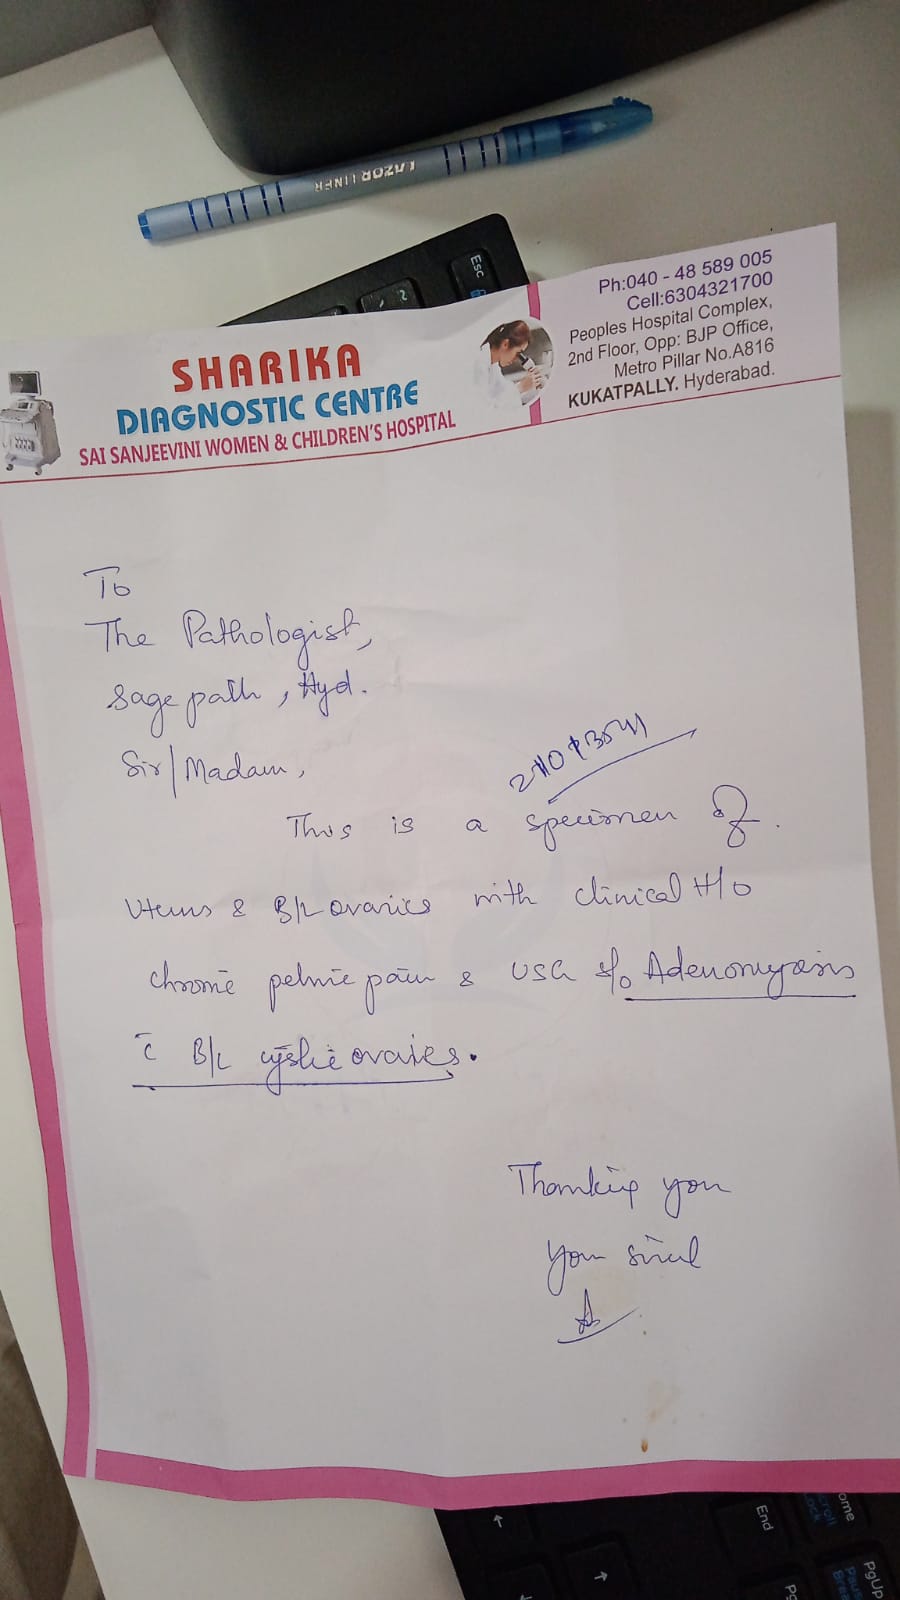 LAZOR LINER
Esc
Ph:040 - 48 589 005
Cell:6304321700
Peoples Hospital Complex,
2nd Floor, Opp: BJP Office,
Metro Pillar No.A816
KUKATPALLY. Hyderabad.
SHARIKA
DIAGNOSTIC CENTRE
SAI SANJEEVINI WOMEN & CHILDREN'S HOSPITAL
To
The Pathologist,
Sagepath, Hyd.
Sir/Madam,
This is a specimen of
Uterus & B/L ovaries with clinical H/o
chronic pelvic pain & USG s/o Adenomyosis
c̄ B/L cystic ovaries.
Thanking you
End
PgUp